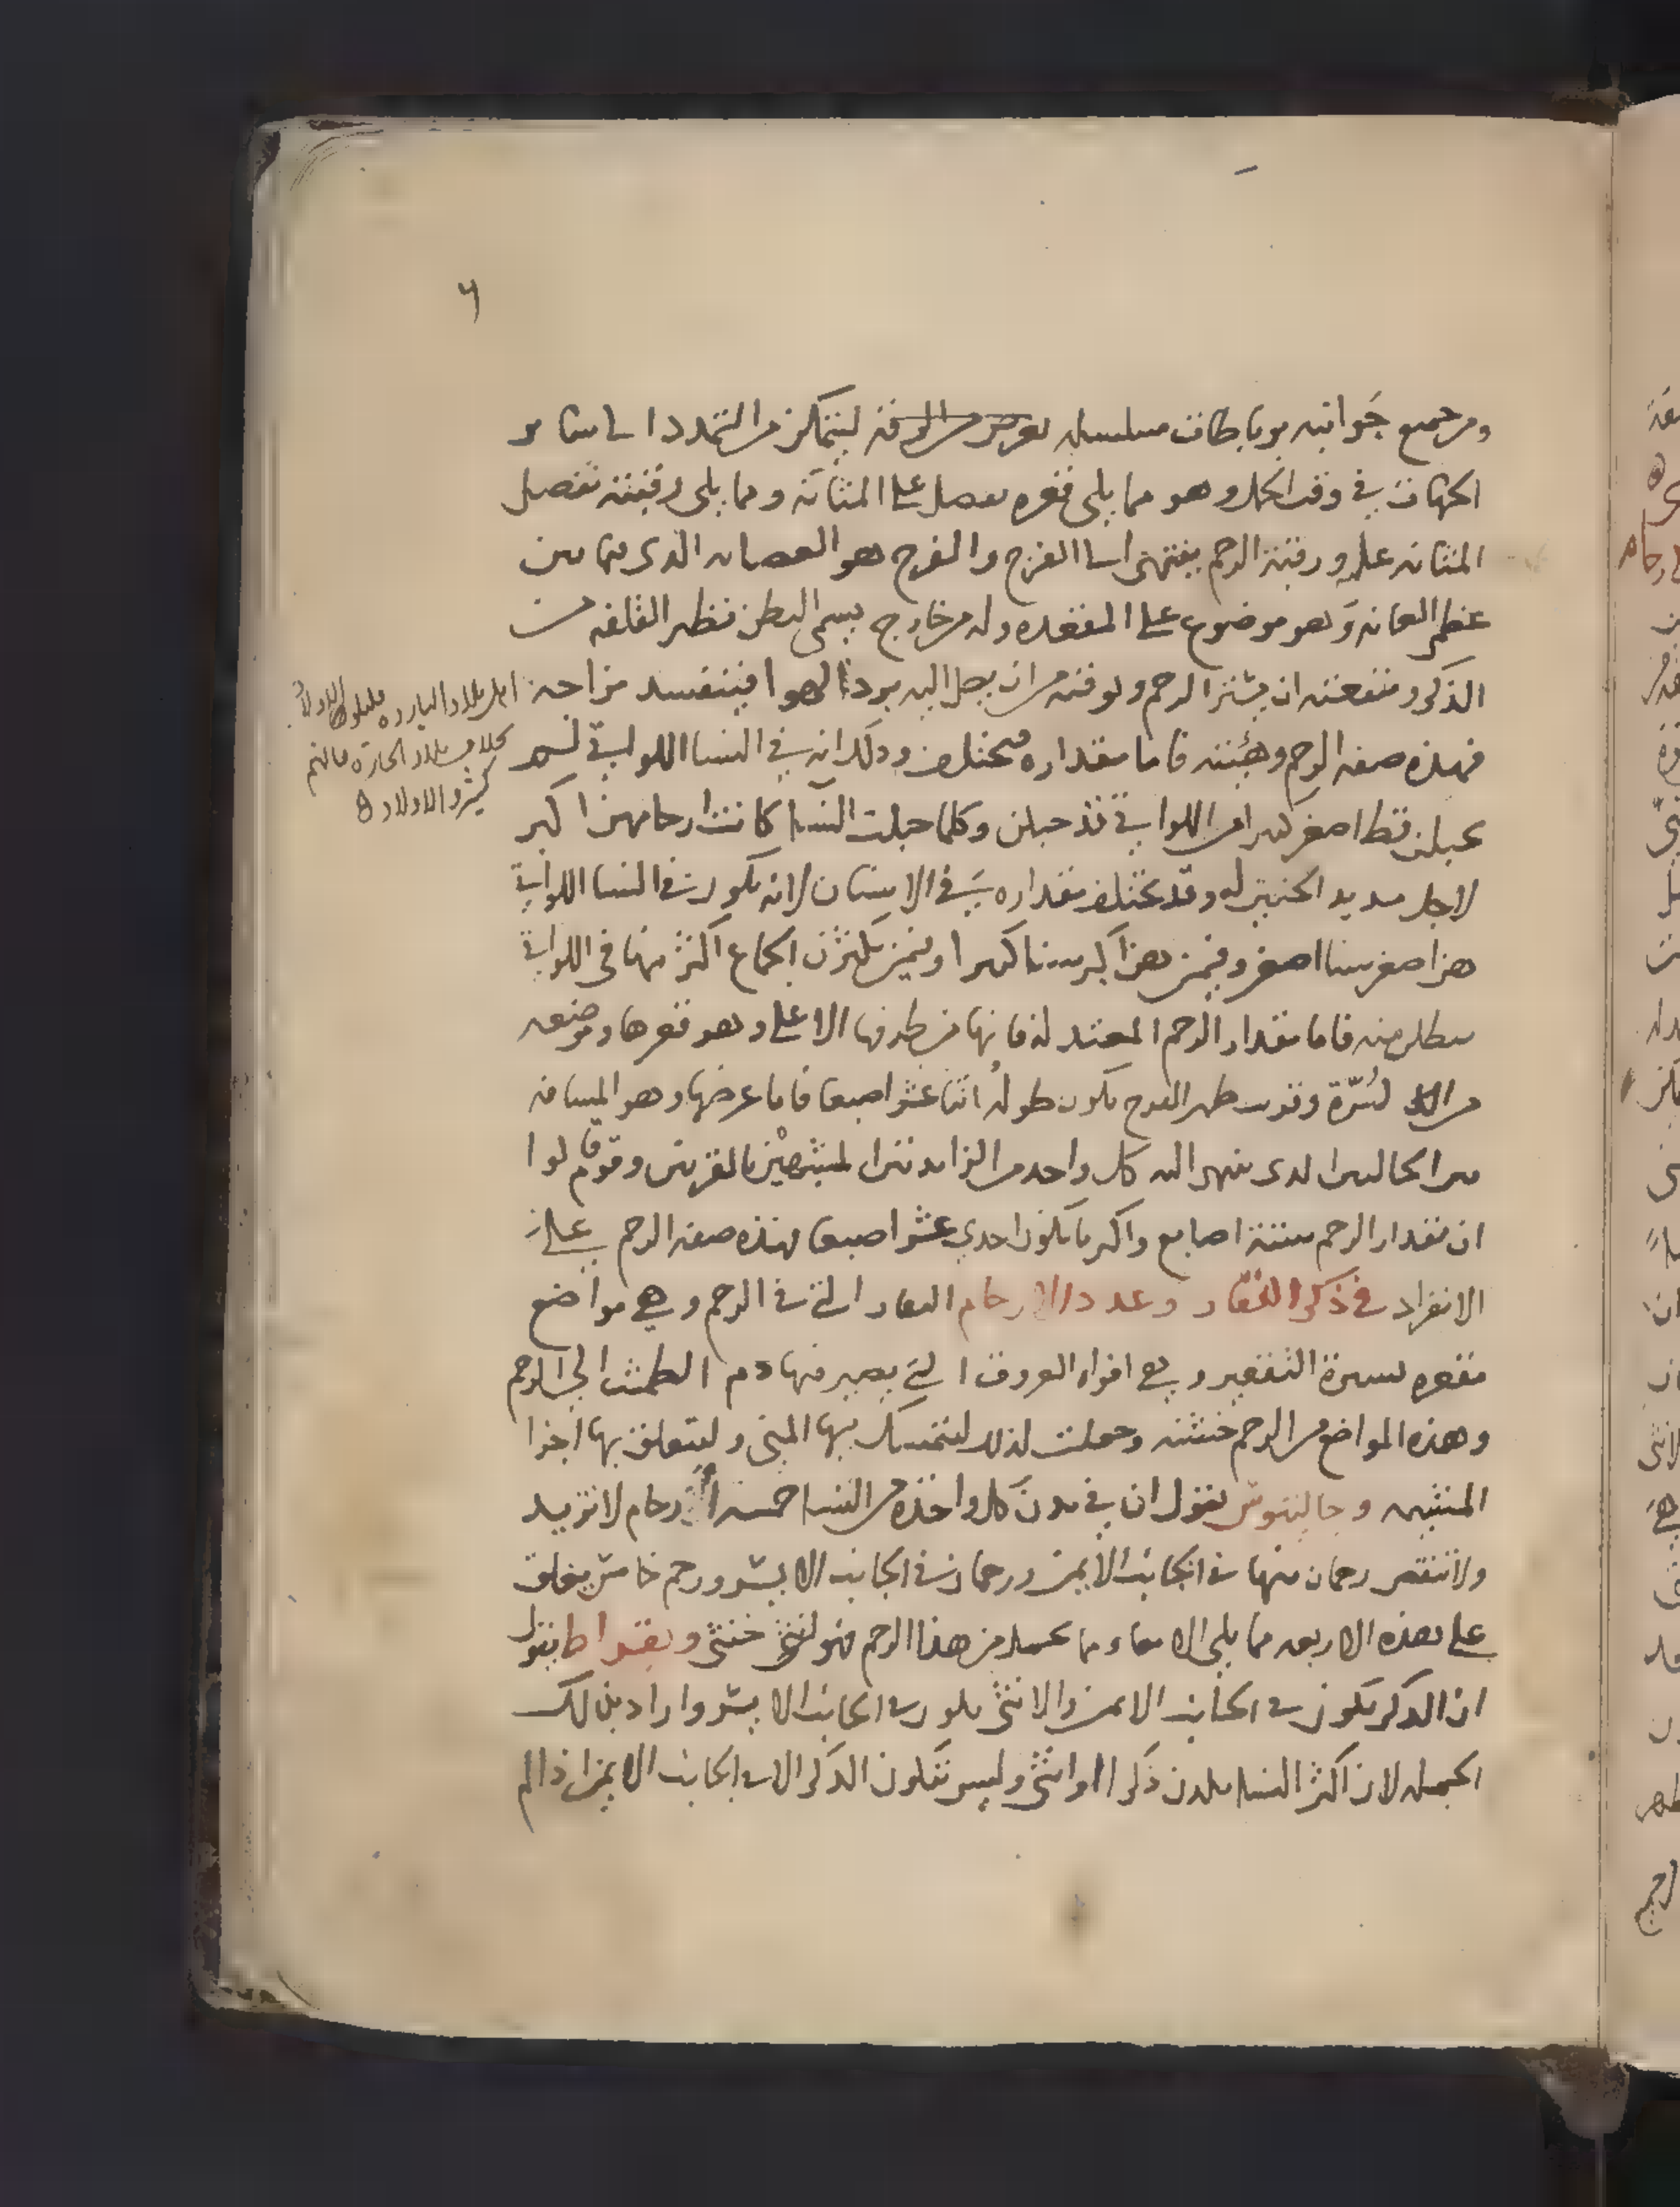 ٦
ومن جميع جوانبه برباطات سلسله ليتمكن من التمدد الى سائر
الجهات في وقت الحمل وهو مما يلي قعره يفصل على المثانه ومما يلي رقبته تفصل
المثانه عليه ورقبة الرحم ينتهي الى الفرج والفرج هو الفضاء الذي فيما بين
عظم العانه وهو موضوع على المقعده وله من خارج يسمى البظر نظير القلفه من
الذكر ومنفعته ان يستر الرحم ويوقيه من ان يصل اليه برد الهوا فيفسد مزاجه
اهل بلاد البارده قليلون الاولاد
بخلاف بلاد الحارة فانهم
كثيرو الاولاد
فهذه صفه الرحم وهيئته فاما مقداره فمختلف وذلك انه في النسا اللواتي لم
يحبلن قط اصغر كثيرا من اللواتي قد حبلن وكلما حبلت النسا كانت ارحامهن اكبر
لاجل تمديد الجنين له وقد يختلف مقداره في الاسنان لانه يكون في النسا اللواتي
هن اصغر سنا اصغر وفيمن هن اكبر سنا كبيرا وفيمن يكثرن الجماع اكثر منها في اللواتي
يبطلن منه فاما مقدار الرحم المعتدل فانها من طرفها الاعلى وهو قعرها وموضعه
من السُرّة وقرب ظهر الفرج يكون طوله اثنا عشر اصبعا فاما عرضها وهو المسافه
من الحالبين الذي ينتهي اليه كل واحد من الزايدتين الشبيهتين بالقرنين وقوم قالوا
ان مقدار الرحم ستة اصابع واكبر ما يكون احدي عشر اصبعا فهذه صفه الرحم على
الانفراد في ذكر النقار وعدد الارحام النقار التي في الرحم وهي مواضع
مقعره يسيرة التقعير وهي افواه العروق التي يصير منها دم الطمث الى الرحم
وهذه المواضع من الرحم خشنه وجعلت لذلك ليتمسك بها المني وليتعلق بها اجزا
المشيمه وجالينوس يقول ان في بدن كل واحده من النسا خمسه ارحام لا تزيد
ولا تنقص رحمان منها في الجانب الايمن ورحمان في الجانب الايسر ورحم خامس معلق
على هذه الاربعه مما يلي الامعاء مما يحمل من هذا الرحم فهو انثى خنثى وبقراط يقول
ان الذكر يكون في الجانب الايمن والانثى يكون في الجانب الايسر واراد بذلك
الجمله لان اكثر النسا يلدن ذكرا او انثى وليس يكون الذكر الا في الجانب الايمن اذا لم